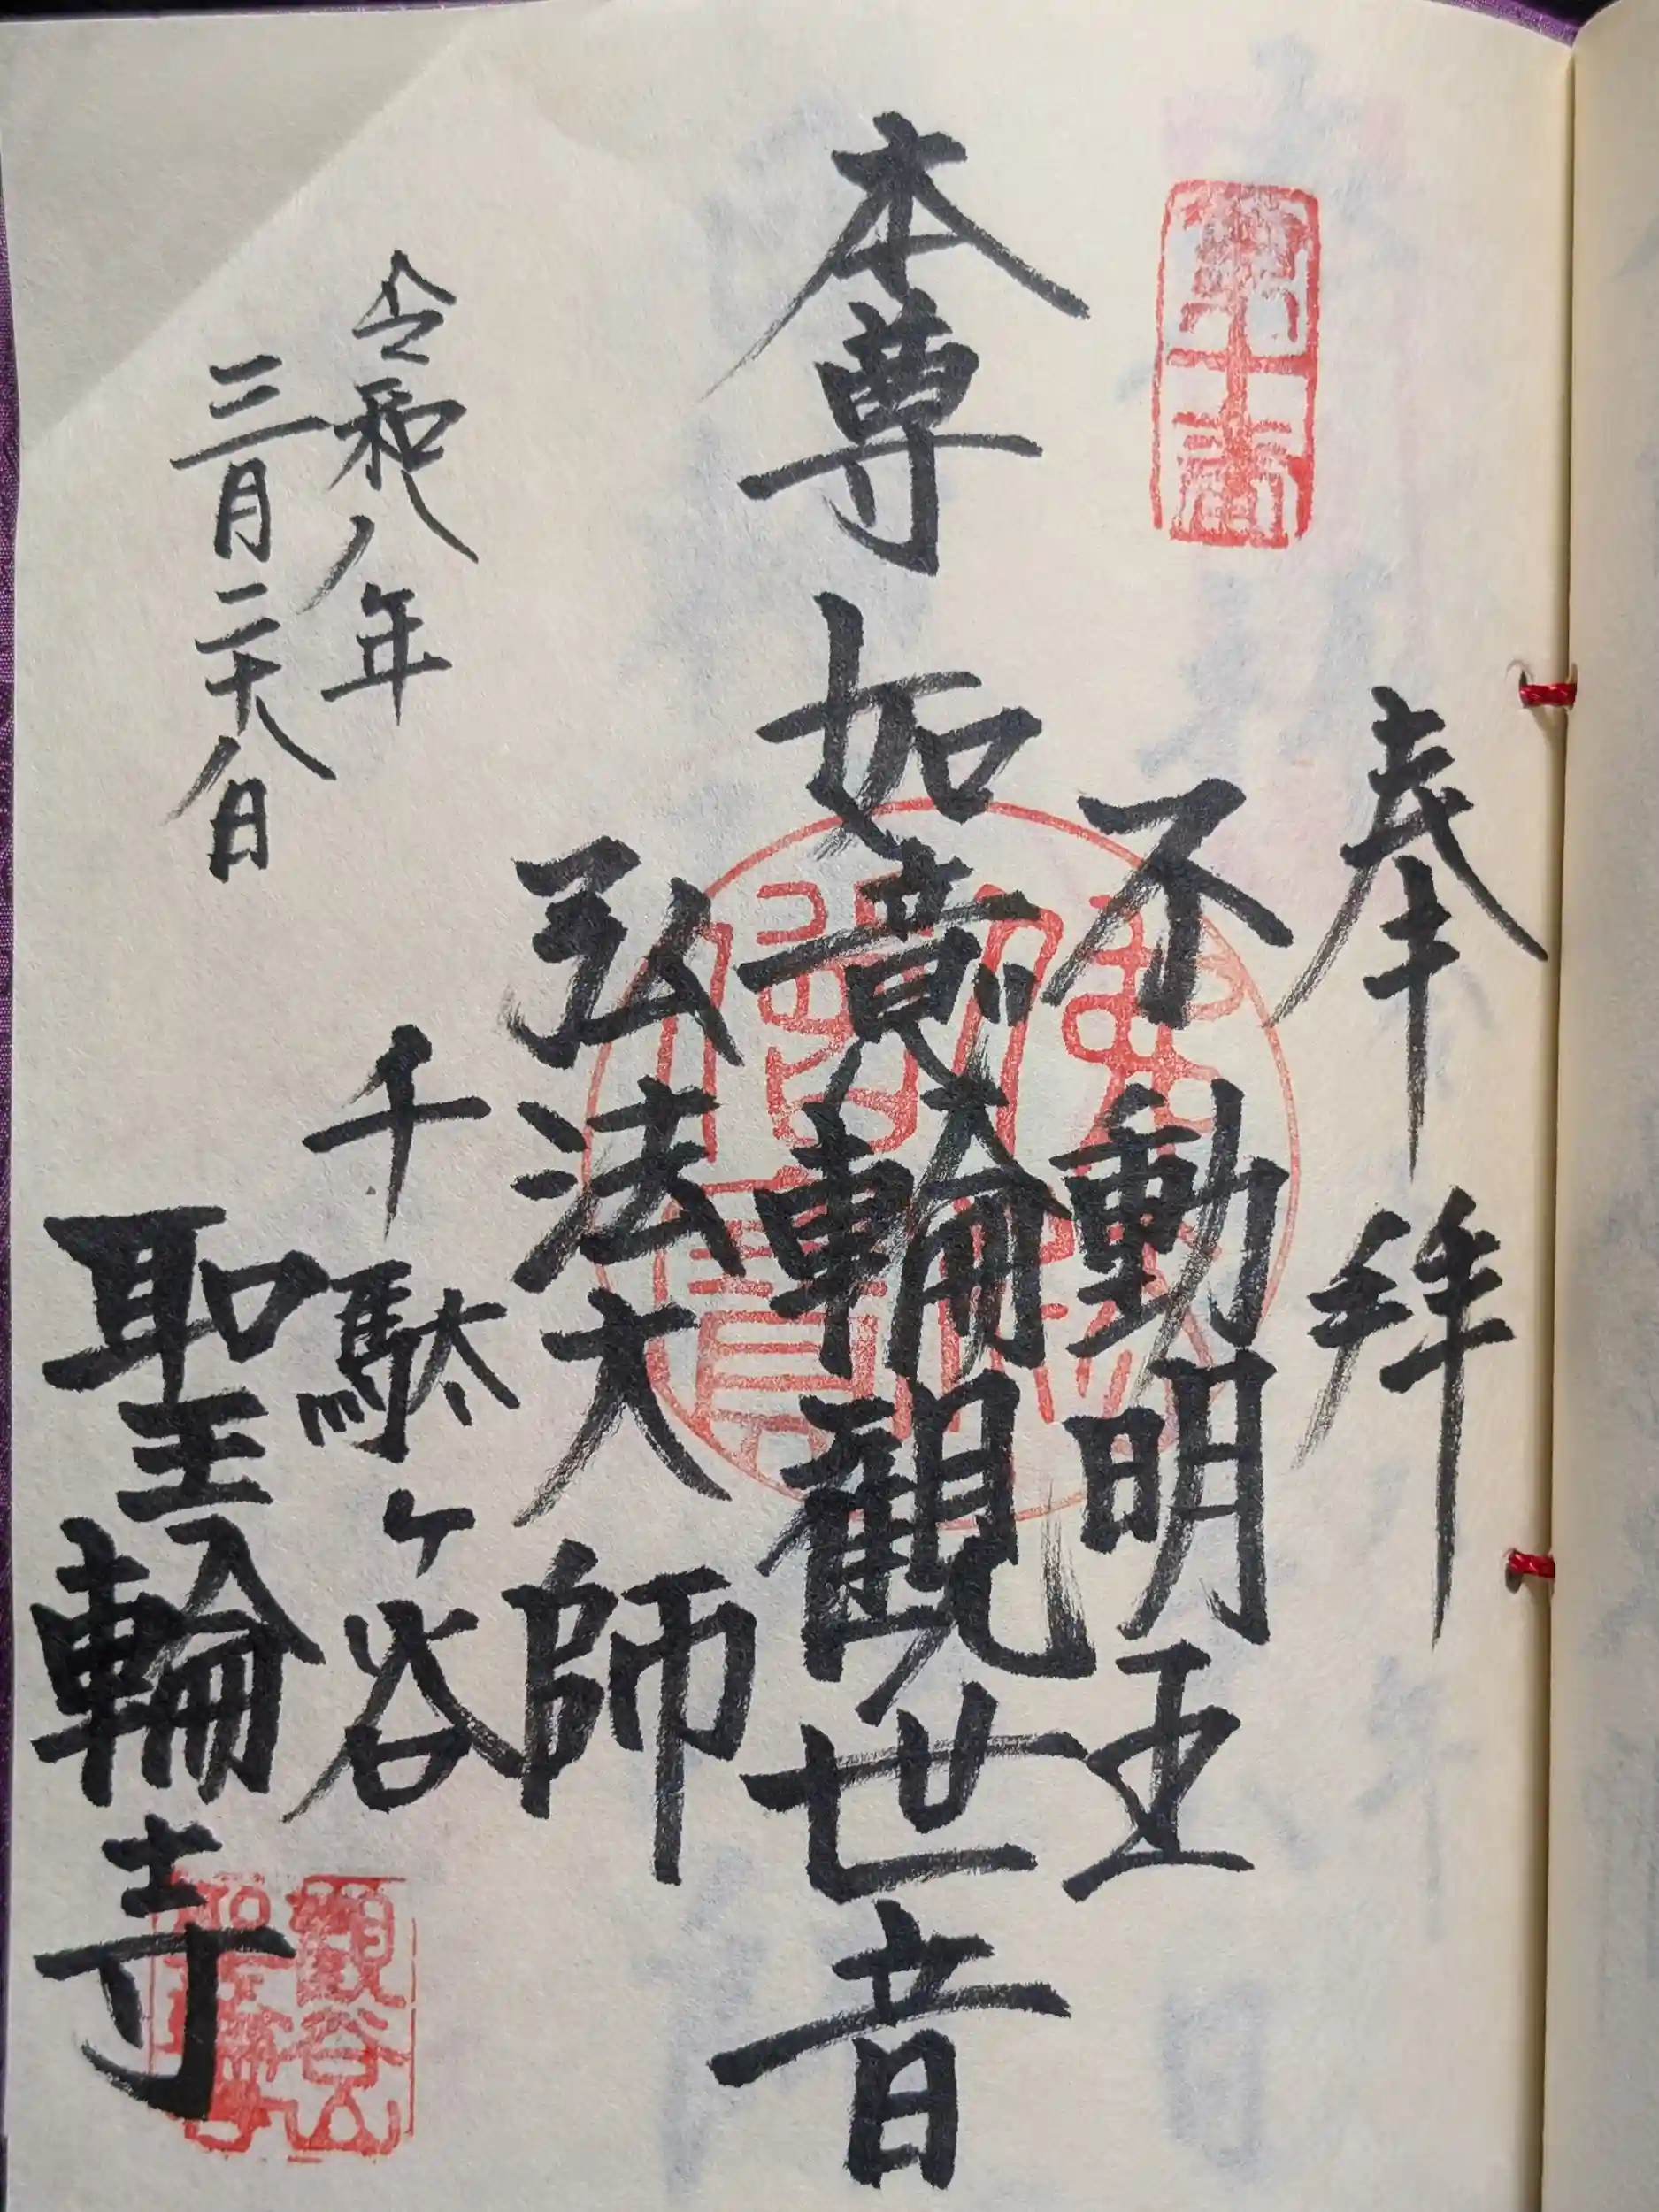 奉拝
不動明王
本尊 如意輪観世音
弘法大師
令和八年
三月二十八日
千駄ヶ谷
聖輪寺
観谷山
聖輪寺